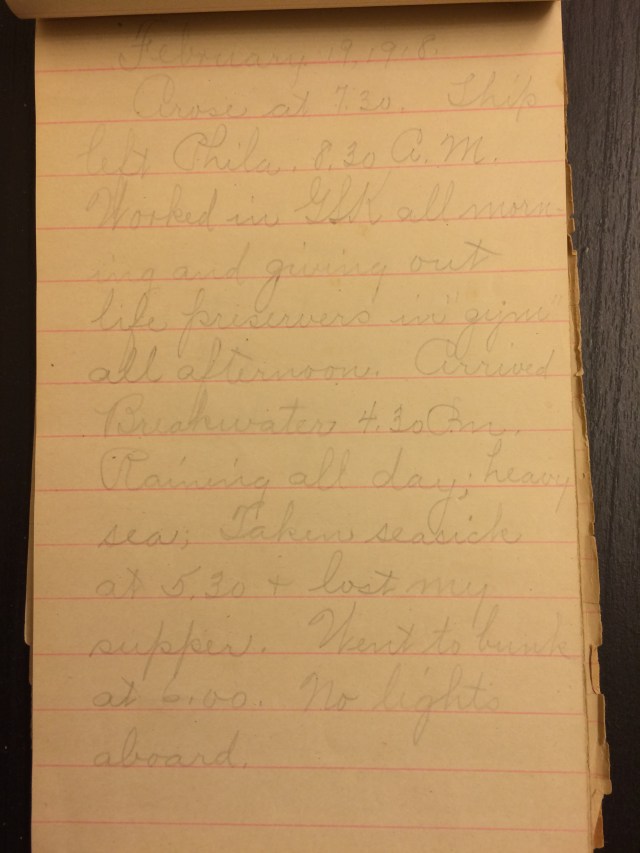 February 19, 1918.
Arose at 7.30. Ship
left Phila. 8.30 A.M.
Worked in GSK all morn-
ing and giving out
life preservers in "gym"
all afternoon. Arrived
Breakwater 4.30 P.m.
Raining all day; heavy
sea; Taken seasick
at 5.30 + lost my
supper. Went to bunk
at 6.00. No lights
aboard.